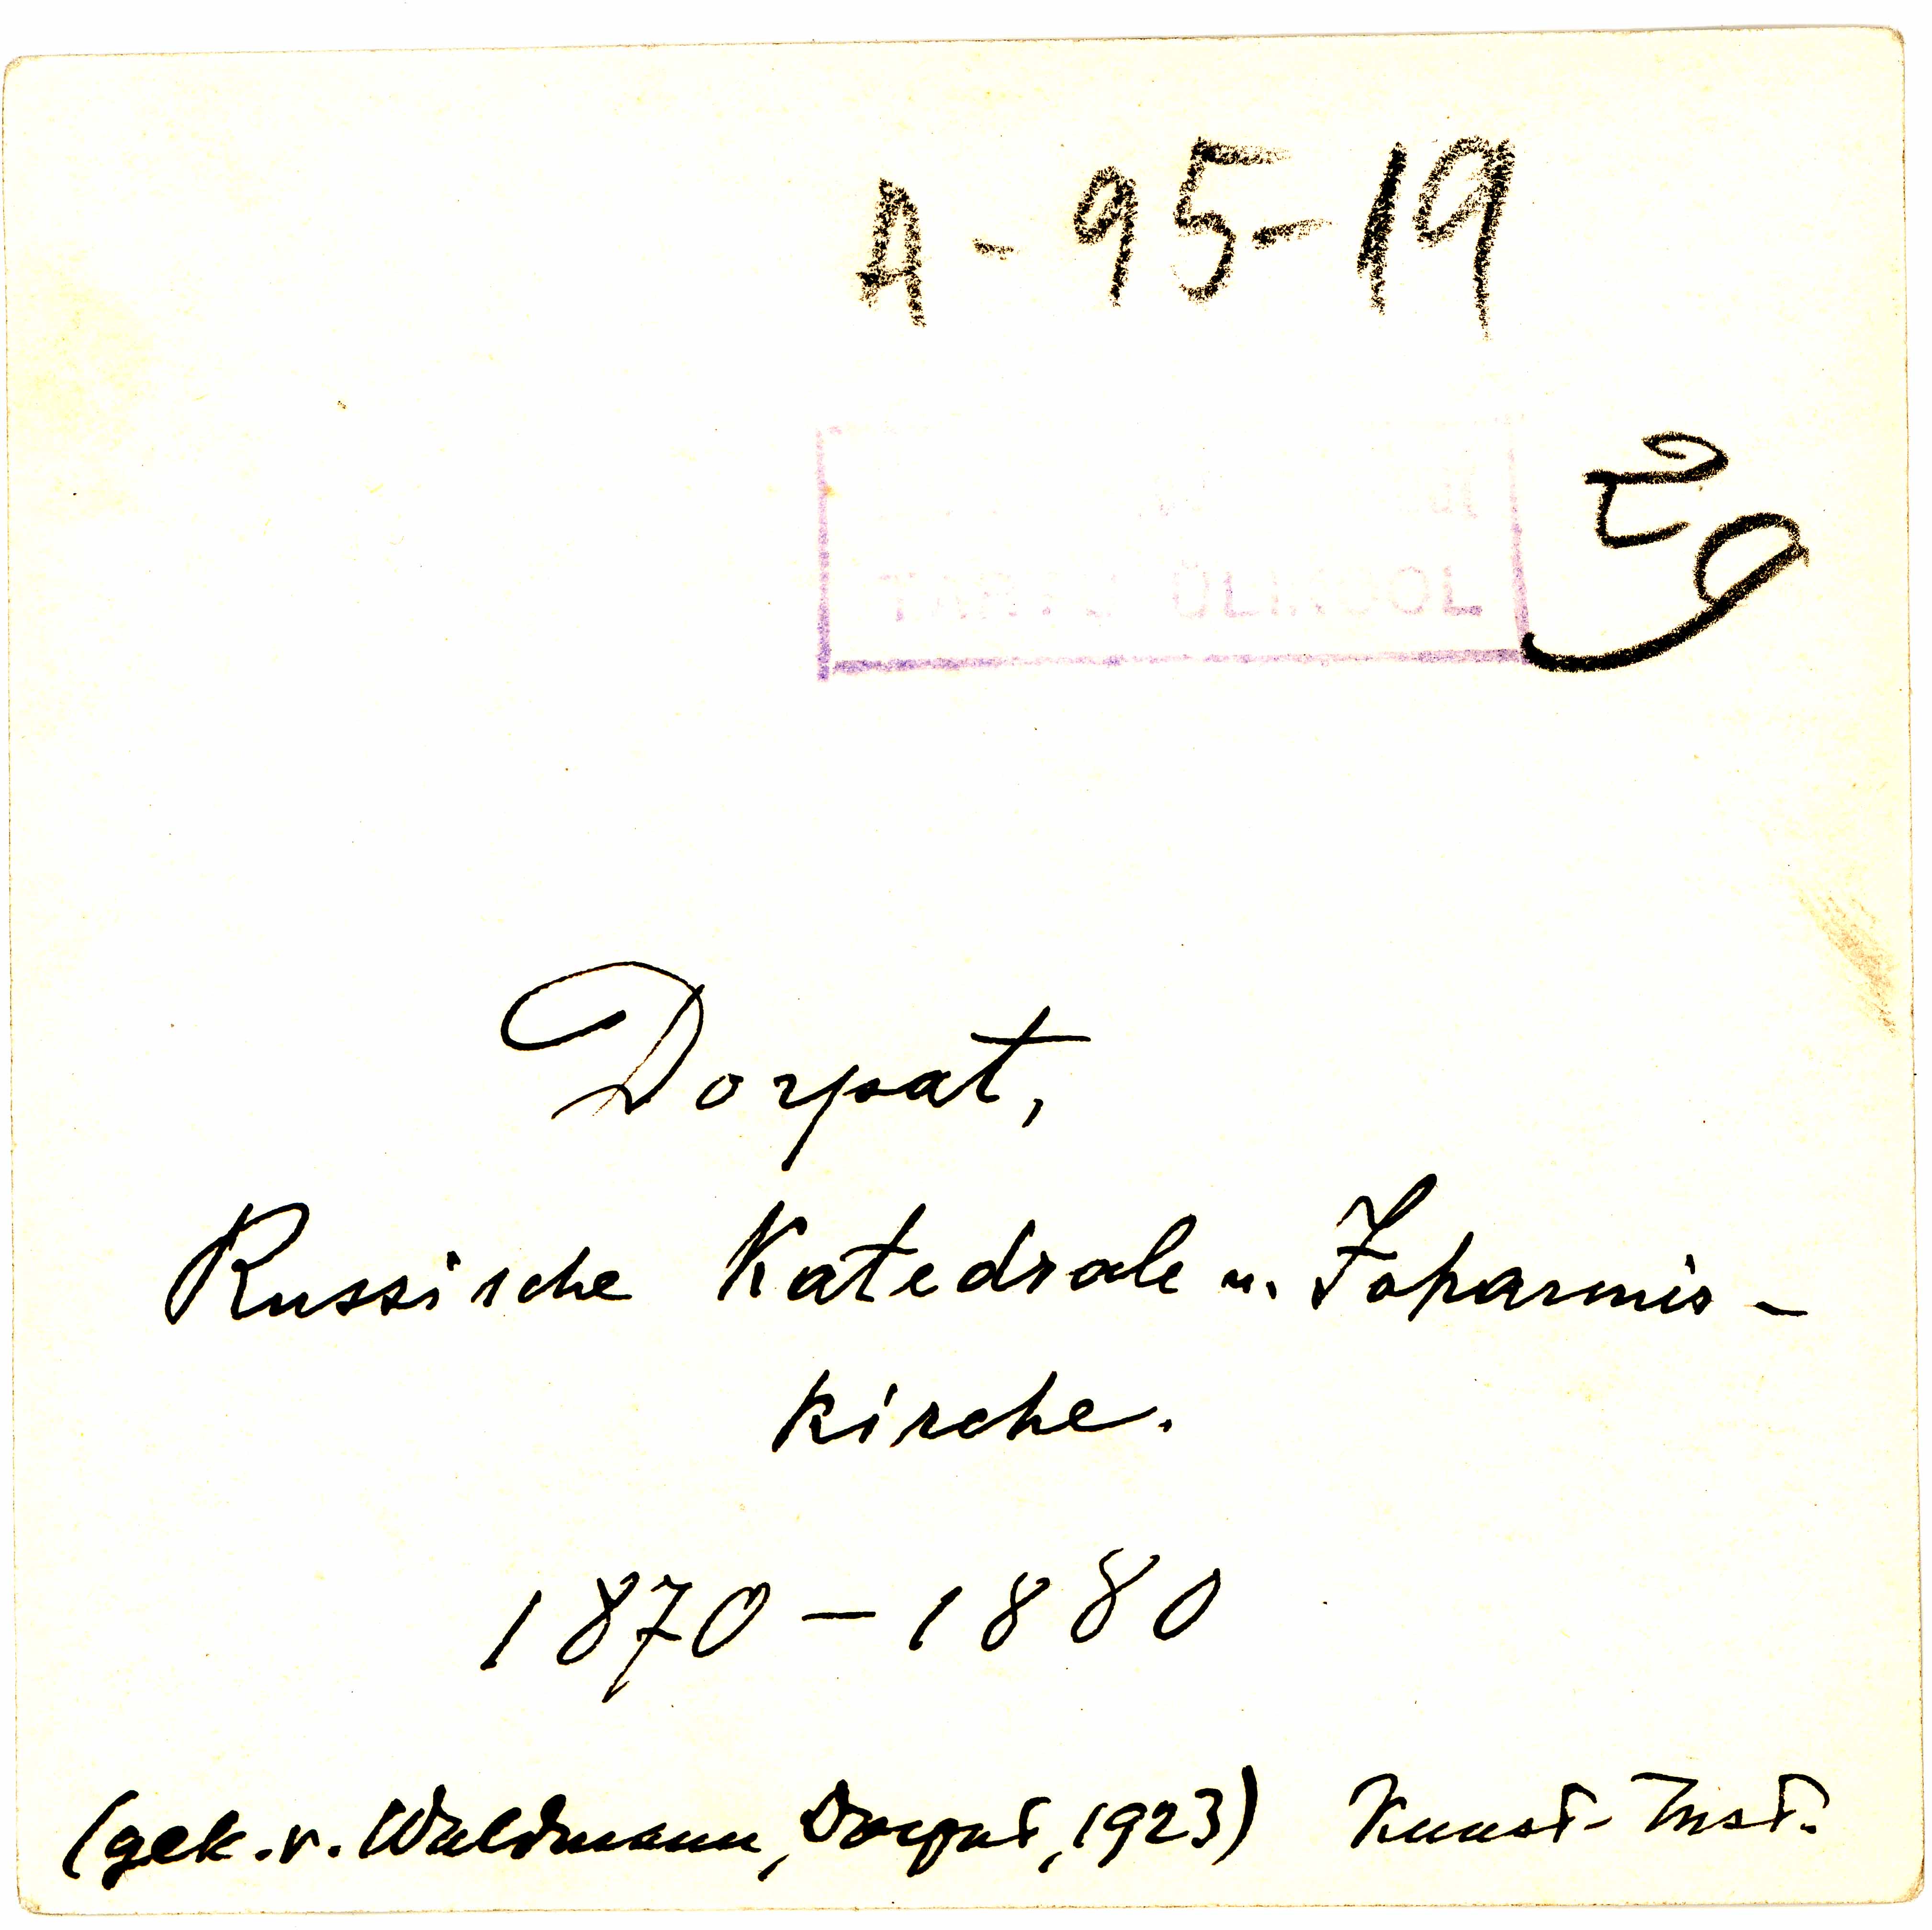 A-95-19
29
TARTU ÜLIKOOL
Dorpat,
Russische Katedrale u. Johannis-
kirche.
1870-1880
(gek. v. Waldmann, Dorpat, 1923) Kunst-Inst.